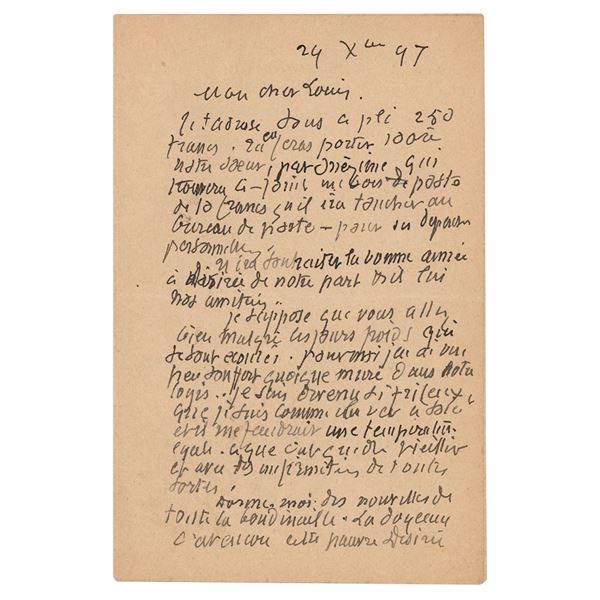 29 Xbre 97
Mon cher Louis.
Je t'adresse sous ce pli 250
francs. Tu en feras porter 100 à
notre sœur, par Onésime qui
trouvera ci-joint un bon de poste
de 10 francs qu'il ira toucher au
bureau de poste – pour ses dépenses
personnelles.
Il ira souhaiter la bonne année
à Désirée de notre part
nos amitiés.
Je suppose que vous allez
bien malgré les jours froids qui
se sont écoulés. Pour moi j'ai
souffert quoique muré dans notre
logis. Je suis devenu si frileux,
que je suis comme un ver à soie
et il me faudrait une température
égale. Ce que c'est que de vieillir
et avec des infirmités de toutes
sortes!
Donne-moi des nouvelles de
toute la
cette pauvre Désirée